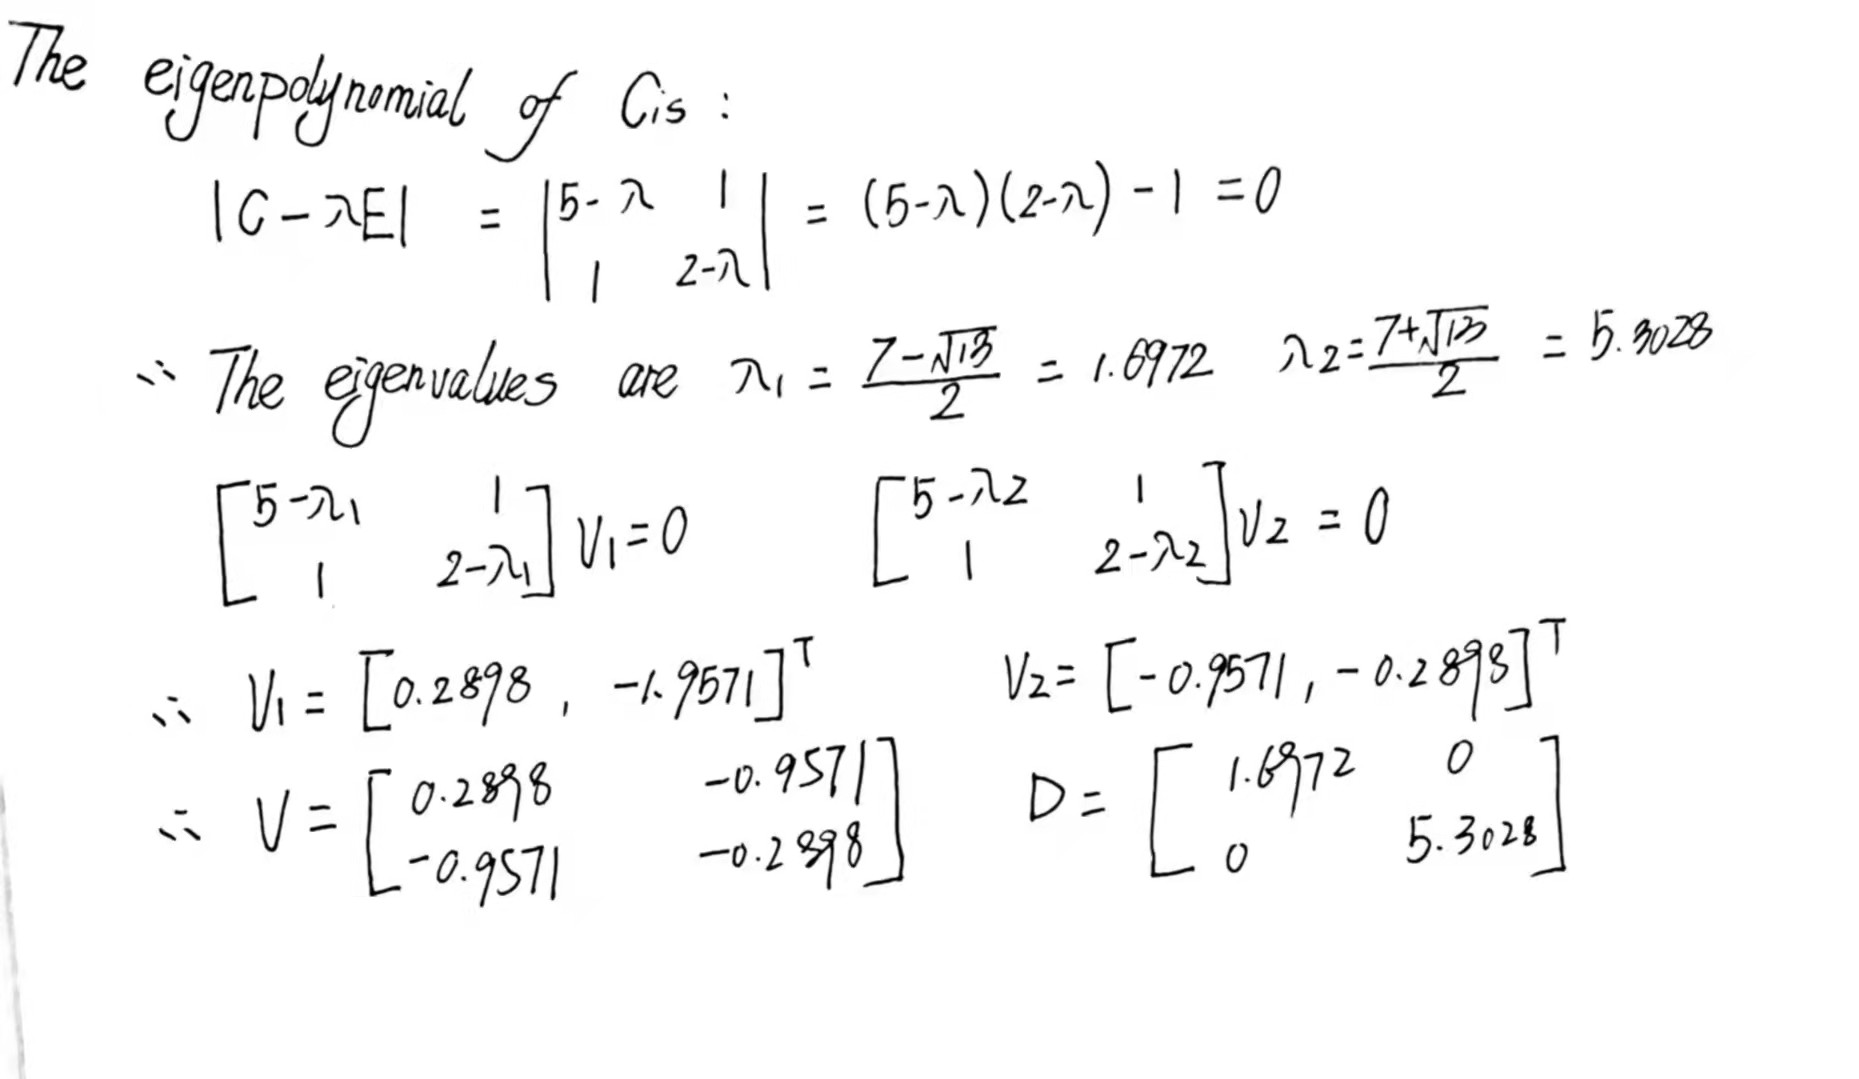 The eigenpolynomial of C is :
|C - λE| = |5-λ 1; 1 2-λ| = (5-λ)(2-λ) - 1 = 0
∵ The eigenvalues are λ1 = (7-√13)/2 = 1.6972 λ2 = (7+√13)/2 = 5.3028
[5-λ1 1; 1 2-λ1] V1 = 0 [5-λ2 1; 1 2-λ2] V2 = 0
∴ V1 = [0.2898 , -1.9571]^T V2 = [-0.9571 , -0.2898]^T
∴ V = [0.2898 -0.9571; -0.9571 -0.2898] D = [1.6972 0; 0 5.3028]